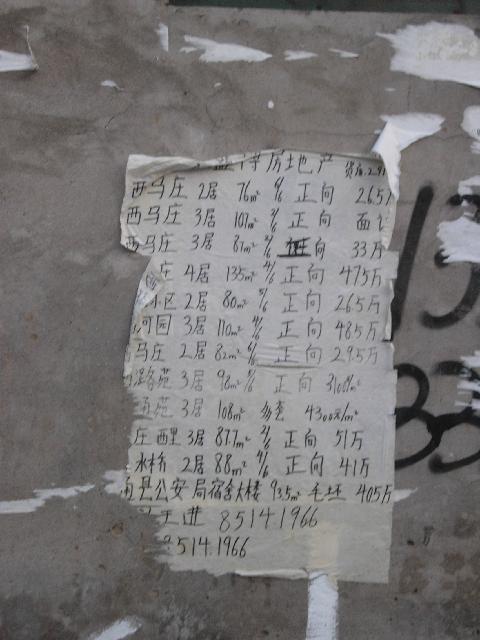 房地产
西马庄 2居 76m² 6/6 正向 26.5万
西马庄 3居 107m² 2/6 正向 面
西马庄 3居 87m² 2/6 向 33万
庄 4居 135m² 4/6 正向 47.5万
小区 2居 80m² 5/6 正向 26.5万
河园 3居 110m² 4/6 正向 48.5万
马庄 2居 82m² 6/6 正向 29.5万
路苑 3居 98m² 正向 3100/m²
苑 3居 108m² 4300元/m²
庄西里 3居 87.7m² 2/6 正向 51万
2居 88m² 4/6 正向 41万
县公安局宿舍大楼 93.5m² 毛坯 40.5万
王进 8514.1966
8514.1966
13
83